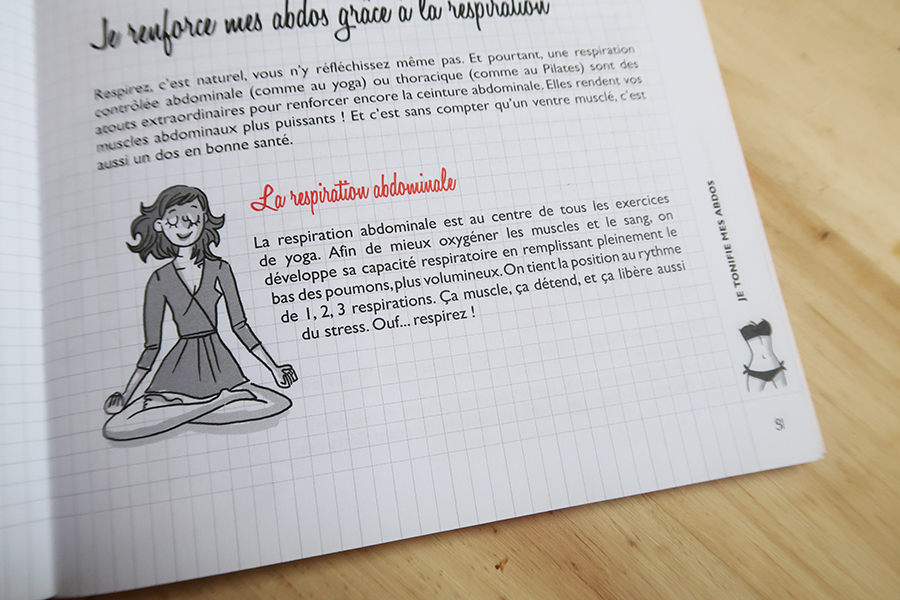 Je renforce mes abdos grâce à la respiration
Respirez, c'est naturel, vous n'y réfléchissez même pas. Et pourtant, une respiration
contrôlée abdominale (comme au yoga) ou thoracique (comme au Pilates) sont des
atouts extraordinaires pour renforcer encore la ceinture abdominale. Elles rendent vos
muscles abdominaux plus puissants ! Et c'est sans compter qu'un ventre musclé, c'est
aussi un dos en bonne santé.
La respiration abdominale
La respiration abdominale est au centre de tous les exercices
de yoga. Afin de mieux oxygéner les muscles et le sang, on
développe sa capacité respiratoire en remplissant pleinement le
bas des poumons, plus volumineux. On tient la position au rythme
de 1, 2, 3 respirations. Ça muscle, ça détend, et ça libère aussi
du stress. Ouf... respirez !
JE TONIFIE MES ABDOS